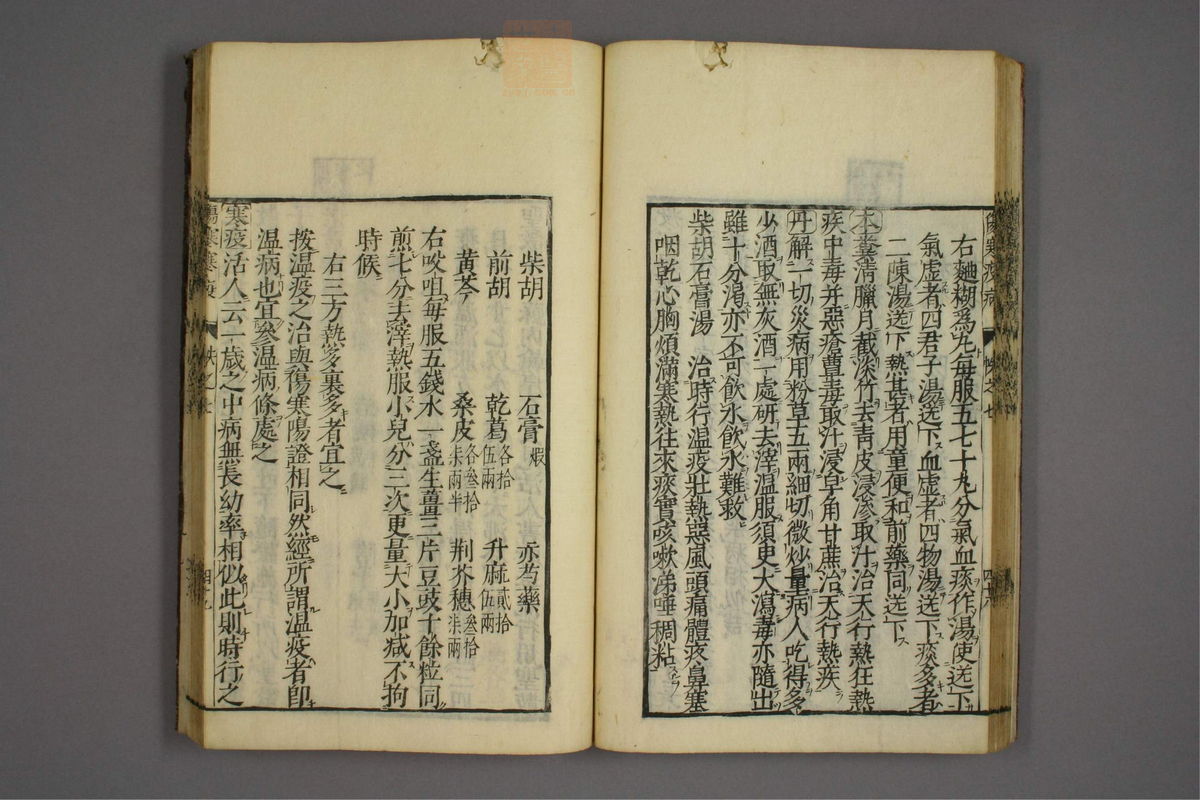 右麯糊爲丸每服五七十丸分氣血痰作湯使送下
氣虛者四君子湯送下血虛者四物湯送下痰多者
二陳湯送下熱甚者用童便和前藥同送下
本囊清臘月截淡竹去靑皮浸滲取汁治天行熱狂熱
疾中毒并惡瘡曹毒取汁浸皁角甘蔗治天行熱疾
丹解一切災病用粉草五兩細切微炒量病人吃得多
少酒取無灰酒一處研去滓温服須臾大瀉毒亦隨出
雖十分渴亦不可飮水飮水難救
柴胡石膏湯 治時行温疫壯熱惡風頭痛體疼鼻塞
咽乾心胸煩滿寒熱往來痰實咳嗽涕唾稠粘
柴胡 石膏煅 赤芍藥
前胡 乾葛各拾伍兩 升麻貳拾伍兩
黄芩 桑皮各叁拾柒兩半 荆芥穗叁拾柒兩
右㕮咀每服五錢水一盞生薑三片豆豉十餘粒同
煎七分去滓熱服小兒分三次更量大小加减不拘
時候
右三方熱多裏多者宜之
按温疫之治與傷寒陽證相同然經所謂温疫者卽
温病也宜參温病條處之
寒疫活人云一歲之中病無長幼率相似此則時行之
傷寒寒疫 四十九